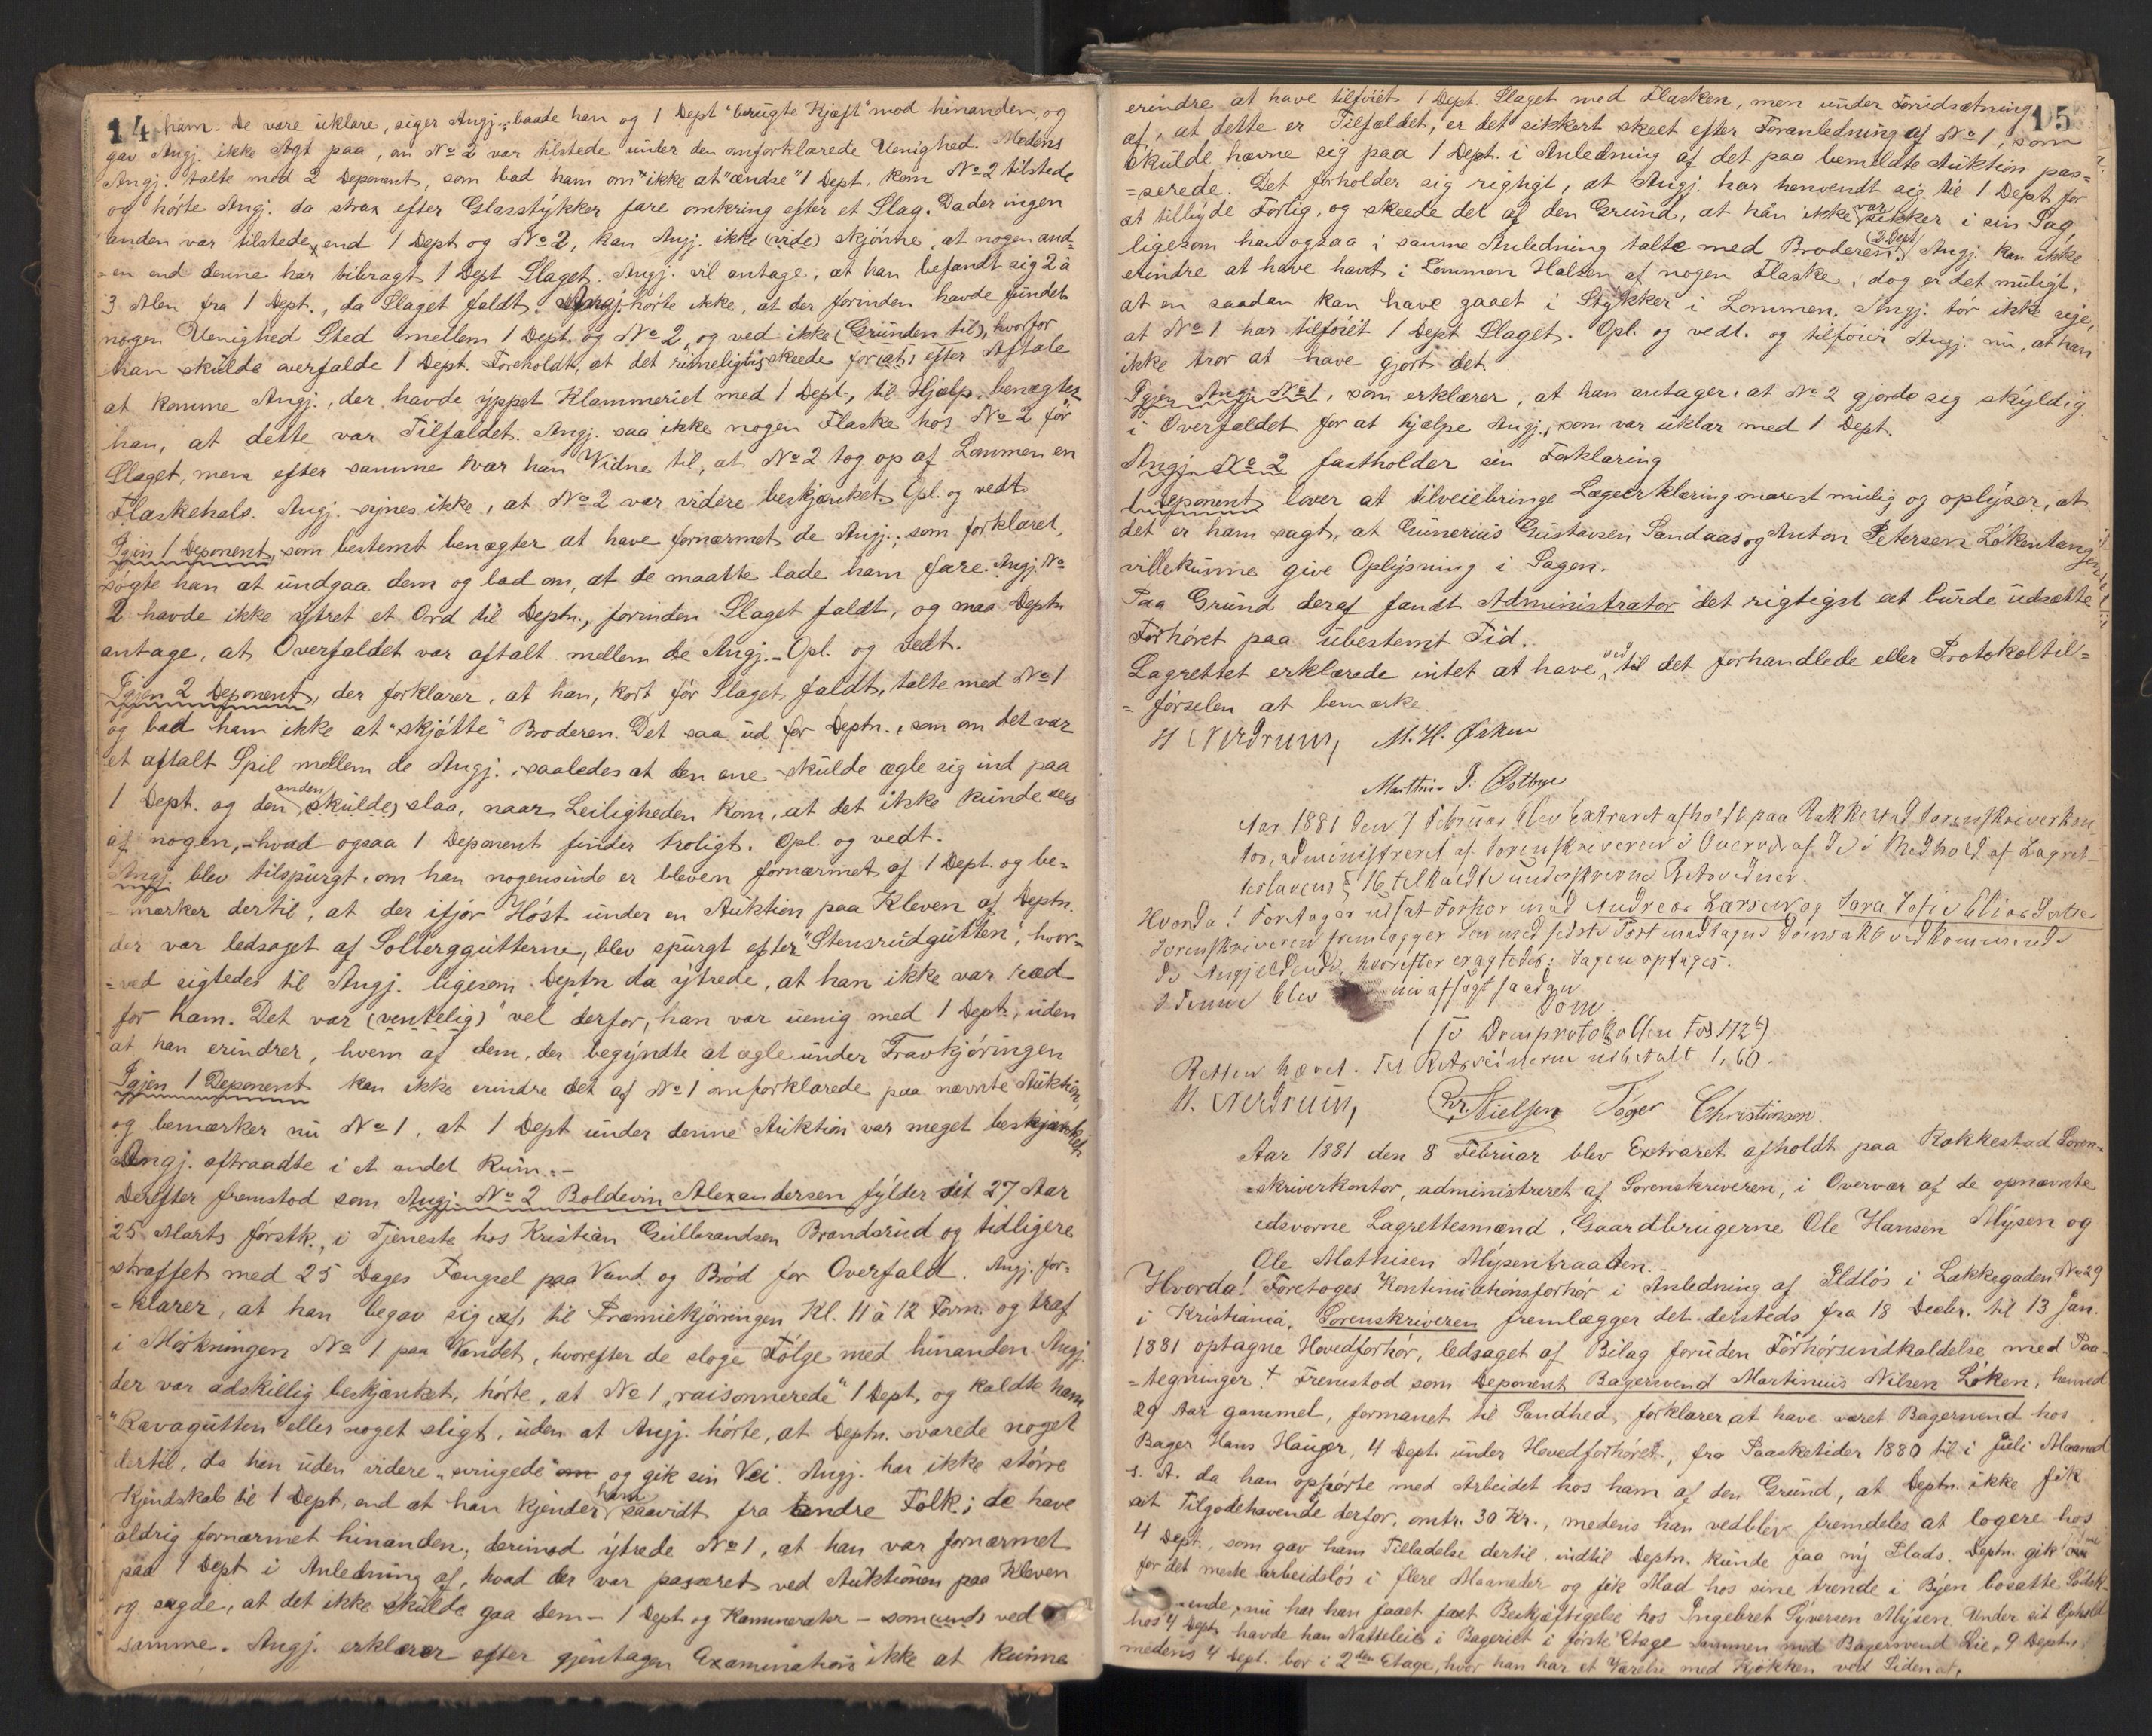 14
ham. De vare uklare, siger Angj., baade han og 1 Dept "brugte Kjæft" mod hinanden, og
gav Angj. ikke Agt paa, om No 2 var tilstede under den omforklarede Uenighed. Medens
Angj. talte med 2 Deponent, som bad ham om ikke at "ændse" 1 Dept, kom No 2 tilstede
og hørte Angj. da strax efter Glasstykker fare omkring efter et Slag. Da der ingen
anden var tilstede, end 1 Dept og No 2, kan Angj. ikke (vide) skjønne, at nogen and=
=en end denne har bibragt 1 Dept Slaget. Angj. vil antage, at han befandt sig 2 à
3 Alen fra 1 Dept., da Slaget faldt. Angj. hørte ikke, at der forinden havde fundet
nogen Uenighed Sted mellem 1 Dept. og No 2, og ved ikke (Grunden til), hvorfor
han skulde overfalde 1 Dept. Foreholdt, at det rimeligvis skeede for (at) efter Aftale
at komme Angj., der havde yppet Klammeriet med 1 Dept., til Hjælp, benægter
han, at dette var Tilfældet. Angj. saa ikke nogen Flaske hos No 2 før
Slaget, men efter samme var han Vidne til, at No 2 tog op af Lommen en
Flaskehals. Angj. synes ikke, at No 2 var videre beskjænket. Opl. og vedt.
Igjen 1 Deponent, som bestemt benægter at have fornærmet de Angj.; som forklaret,
søgte han at undgaa dem og bad om, at de maatte lade ham fare. Angj. No
2 havde ikke ytret et Ord til Deptn., forinden Slaget faldt, og maa Deptn
antage, at Overfaldet var aftalt mellem de Angj. - Opl. og vedt.
Igjen 2 Deponent, der forklarer, at han, kort før Slaget faldt, talte med No 1
og bad ham ikke at "skjøtte" Broderen. Det saa ud for Deptn., som om det var
et aftalt Spil mellem de Angj., saaledes at den ene skulde ægle sig ind paa
1 Dept. og den anden (skulde) slaa, naar Leiligheden kom, at det ikke kunde sees
af nogen, - hvad ogsaa 1 Deponent finder troligt. Opl. og vedt.
Angj. blev tilspurgt, om han nogensinde er bleven fornærmet af 1 Dept. og be=
=mærker dertil, at der ifjor Høst under en Auktion paa Kleven af Deptn.
der var ledsaget af Solberggutterne, blev spurgt efter "Stensrudgutten", hvor=
=ved sigtedes til Angj. ligesom Deptn da ytrede, at han ikke var ræd
for ham. Det var (ventelig) vel derfor, han var uenig med 1 Dept., uden
at han erindrer, hvem af dem, der begyndte at ægle under Travkjøringen
Igjen 1 Deponent kan ikke erindre det af No 1 omforklarede paa nævnte Auktion,
og bemærker nu No 1, at 1 Dept under denne Auktion var meget beskjænket
Angj. aftraadte i et andet Rum. -
Derefter fremstod som Angj. No 2 Boldevin Alexandersen fylder sit 27 Aar
25 Marts førstk., i Tjeneste hos Kristian Gulbrandsen Brandsrud og tidligere
straffet med 25 Dages Fængsel paa Vand og Brød for Overfald. Angj. for=
=klarer, at han begav sig (af) til Præmiekjøringen Kl. 11 à 12 Form. og traf
i Mørkningen No 1 paa Vandet, hvorefter de sloge Følge med hinanden. Angj.
der var adskillig beskjænket, hørte, at No 1 "raisonnerede" 1 Dept. og kaldte ham
"Ravagutten" eller noget sligt, uden at Angj. hørte, at Deptn. svarede noget
dertil, da hin uden videre "svingede" om og gik sin Vei. Angj. har ikke større
Kjendskab til 1 Dept, end at han kjender ham saavidt fra andre Folk; de have
aldrig fornærmet hinanden, derimod ytrede No 1, at han var fornærmet
paa 1 Dept i Anledning af, hvad der var passeret ved Auktionen paa Kleven
og sagde, at det ikke skulde gaa dem - 1 Dept. og Kammerater - som (und) ved
samme. Angj. erklærer efter gjentagen Examination ikke at kunne
15
erindre at have tilføiet 1 Dept. Slaget med Flasken, men under Forudsætning
af, at dette er Tilfældet, er det sikkert skeet efter Foranledning af No 1, som
skulde hævne sig paa 1 Dept. i Anledning af det paa bemeldte Auktion pas=
=serede. Det forholder sig rigtigt, at Angj. har henvendt sig til 1 Dept for
at tilbyde Forlig, og skeede det af den Grund, at han ikke var sikker i sin Sag,
ligesom han ogsaa i samme Anledning talte med Broderen (2 Dept). Angj. kan ikke
erindre at have havt i Lommen Halsen af nogen Flaske; dog er det muligt,
at en saadan kan have gaaet i Stykker i Lommen. Angj. tør ikke sige,
at No 1 har tilføiet 1 Dept Slaget. Opl. og vedt. og tilføier Angj. nu, at han
ikke tror at have gjort det.
Igjen Angj. No 1, som erklærer, at han antager, at No 2 gjorde sig skyldig
i Overfaldet for at hjælpe Angj., som var uklar med 1 Dept.
Angj. No 2 fastholder sin Forklaring
1 Deponent lover at tilveiebringe Lægeerklæring snarest mulig og oplyser, at
det er ham sagt, at Gunerius Gustavsen Sandaas og Anton Petersen Løkentangen
ville kunne give Oplysning i Sagen.
Paa Grund deraf fandt Administrator det rigtigst at burde udsætte
Forhøret paa ubestemt Tid.
Lagrettet erklærede intet at have ved til det forhandlede eller Protokoltil=
=førselen at bemærke.
H Nerdrum, M. H. Ørken
Martin J. Østbye
Aar 1881 den 7 Februar blev Extraret afholdt paa Rakkestad Sorenskriverkon
tor, administreret af Sorenskriveren i Overvær af de i Medhold af Lagret-
teslovens § 16 tilkaldte underskrevne Retsvidner.
Hvorda! Foretages udsat Forhør mod Andreas Larsen og Sara Sofie Elias
Sorenskriveren fremlægger den med sidste Post modtagne vedkommende
de Angjældende, hvorefter eragtedes: Sagen optages.
I denne blev nu afsagt saadan
Dom
(se Domprotokollen Fos 172)
Retten hævet. Til Retsvidnerne udbetalt 1,60.
H. Nerdrum, Chr. Nielsen Christiansen
Aar 1881 den 8 Februar blev Extraret afholdt paa Rakkestad Soren=
=skriverkontor, administreret af Sorenskriveren, i Overvær af de opnævnte
edsvorne Lagrettesmænd, Gaardbrugerne Ole Hansen Mysen og
Ole Mathisen Mysentraaten.
Hvorda! Foretoges Kontinuationsforhør i Anledning af Ildløs i Lakkegaden No 29
i Kristiania. Sorenskriveren fremlægger det dersteds fra 18 Decbr. til 13 Jan.
1881 optagne Hovedforhør, ledsaget af Bilag foruden Forhørsindkaldelse med Paa-
=tegninger. + Fremstod som Deponent Bagersvend Martinius Nilsen Løken, henved
29 Aar gammel, formanet til Sandhed, forklarer at have været Bagersvend hos
Bager Hans Hauger, 4 Dept. under Hovedforhøret, fra Paasketider 1880 til i Juli Maaned
s. A. da han ophørte med Arbeidet hos ham af den Grund, at Deptn. ikke fik
sit Tilgodehavende derfor, omtr. 30 Kr., medens han vedblev fremdeles at logere hos
4 Dept., som gav ham Tilladelse dertil, indtil Deptn. kunde faa ny Plads. Deptn. gik
for det meste arbeidsløs i flere Maaneder og fik Mad hos sine trende i Byen bosatte Sødsk-
ende, nu har han faaet fast Beskjæftigelse hos Ingebret Syversen Mysen. Under sit Ophold
hos 4 Dept. havde han Natteleie i Bageriet i første Etage sammen med Bagersvend Lie, 9 Deptn.
medens 4 Dept. bor i 2den Etage, hvor han har et Værelse med Kjøkken ved Siden af.